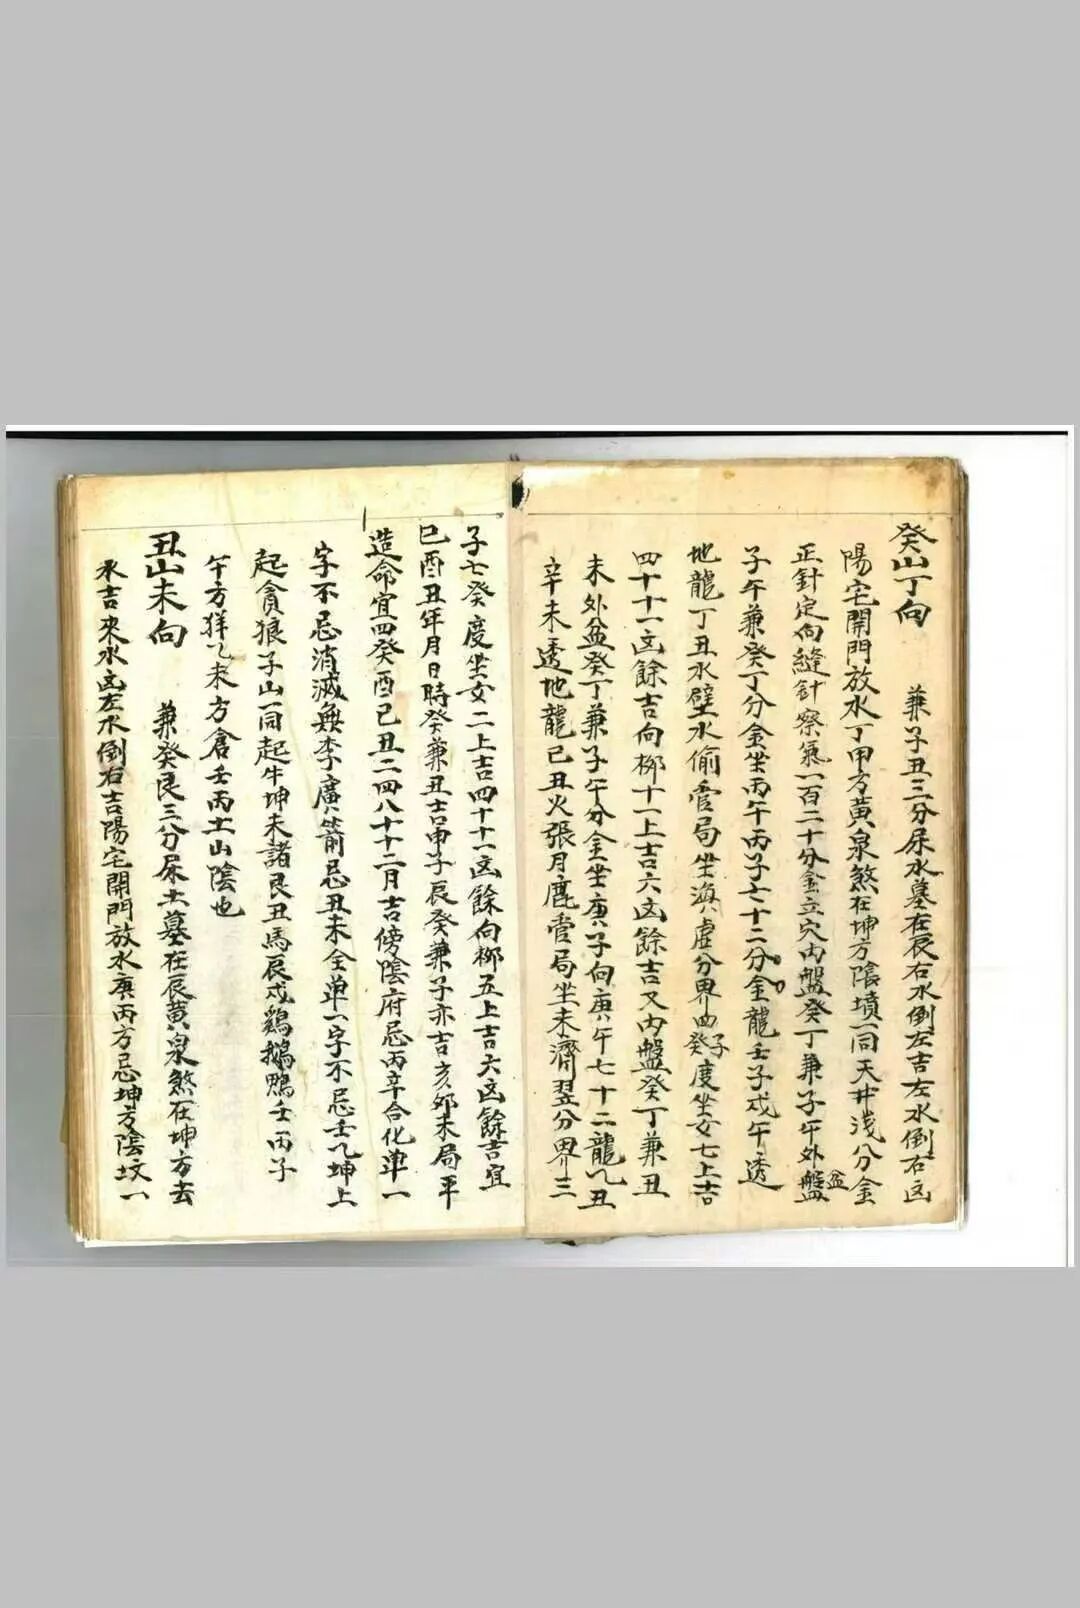 癸山丁向　兼子丑三分尿水墓在辰右水倒左吉左水倒右凶
陽宅開門放水丁甲方黃泉煞在坤方陰墳一同天井淺分金
正針定向縫針察氣一百二十分金立穴內盤癸丁兼子午外盤盆
子午兼癸丁分金坐丙午丙子七十二分金龍壬子戊午透
地龍丁丑水壁水偷管局坐 虛分界曲子癸度坐女七上吉
四十十一凶餘吉向柳十一上吉六凶餘吉又內盤癸丁兼丑
未外盆癸丁兼子午分金坐庚子向庚午七十二龍乙丑
辛未透地龍己丑火張月鹿管局坐未濟翌分界三
子七癸度坐女二上吉四十十一凶餘向柳五上吉六凶餘吉宜
巳酉丑年月日時癸兼丑吉申子辰癸兼子亦吉亥卯未局平
造命宜四癸酉己丑二四八十十二月吉傍陰府忌丙辛合化單一
字不忌消滅無李廣箭忌丑未全單一字不忌壬乙坤上
起貪狼子山一同起牛坤未諸艮丑馬辰戌鷄鵝鴨壬丙子
午方羊乙未方倉壬丙土山陰也
丑山未向　兼癸艮三分尿土墓在辰黃泉煞在坤方去
水吉來水凶左水倒右吉陽宅開門放水庚丙方忌坤方陰坟一